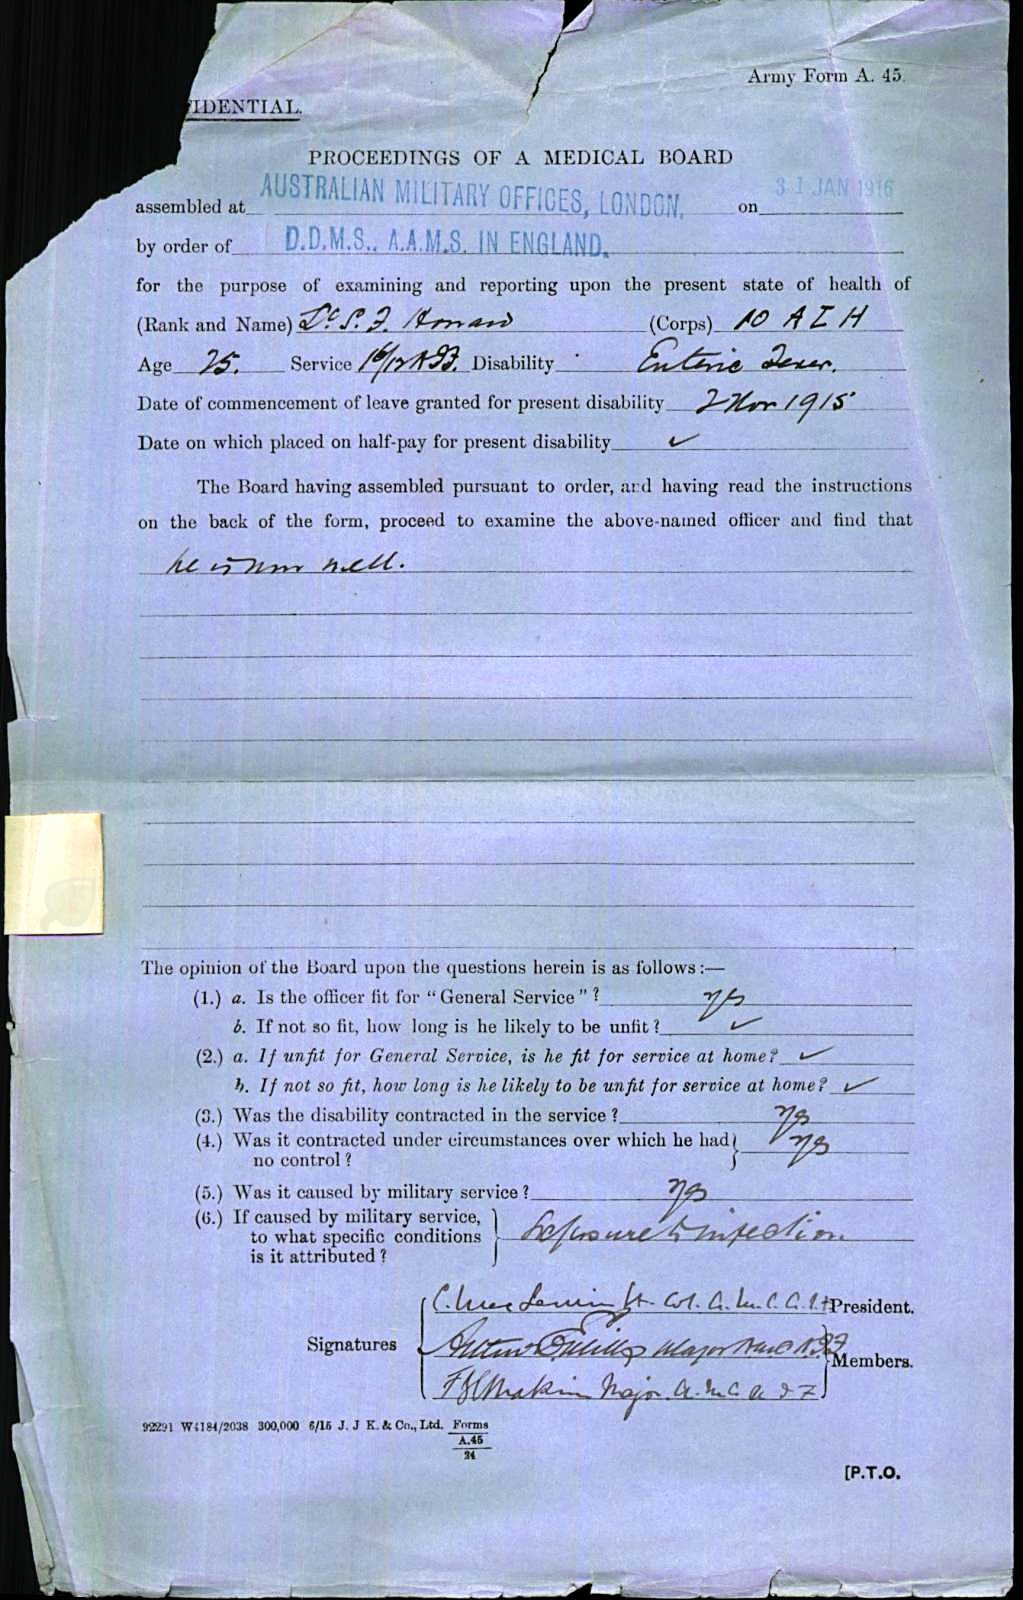 Army Form A. 45.
IDENTIAL.
PROCEEDINGS OF A MEDICAL BOARD
assembled at AUSTRALIAN MILITARY OFFICES, LONDON. on 31 JAN 1916
by order of D.D.M.S., A.A.M.S. IN ENGLAND.
for the purpose of examining and reporting upon the present state of health of
(Rank and Name) Lt S. F. Howard (Corps) 10 A L H
Age 25. Service Disability Enteric Fever.
Date of commencement of leave granted for present disability 2 Nov 1915
Date on which placed on half-pay for present disability ✓
The Board having assembled pursuant to order, and having read the instructions
on the back of the form, proceed to examine the above-named officer and find that
he is now well.
The opinion of the Board upon the questions herein is as follows:—
(1.) a. Is the officer fit for "General Service"? yes
b. If not so fit, how long is he likely to be unfit? ✓
(2.) a. If unfit for General Service, is he fit for service at home? ✓
b. If not so fit, how long is he likely to be unfit for service at home? ✓
(3.) Was the disability contracted in the service? yes
(4.) Was it contracted under circumstances over which he had
no control? yes
(5.) Was it caused by military service? yes
(6.) If caused by military service,
to what specific conditions Exposure to infection
is it attributed?
Lt. Col. A.M.C. A.I.F President.
Signatures
Major Members.
Makin Major A.M.C. A I F
92291 W4184/2038 300,000 6/15 J. J K. & Co., Ltd. Forms
A.45
24
[P.T.O.